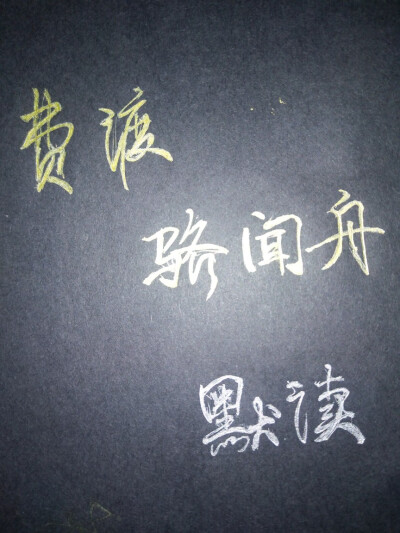 费渡
骆闻舟
默读